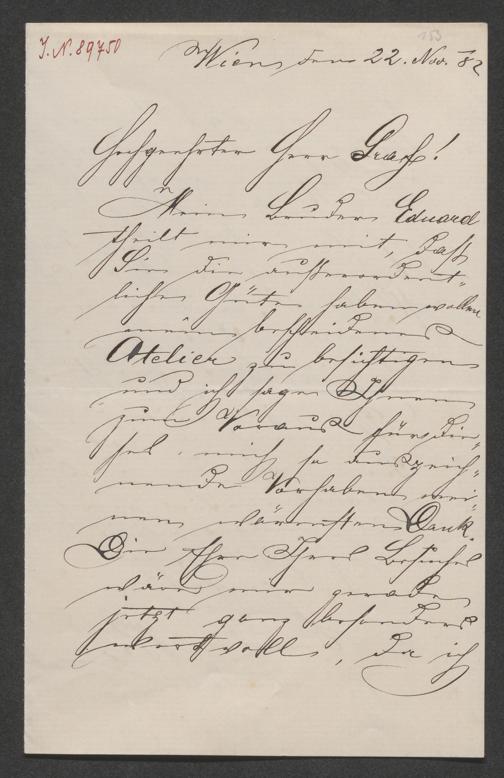 J. N. 89750
153
Wien, den 22. Nov. 82
Hochgeehrter Herr Graf!
Mein Bruder Eduard
theilt mir mit, daß
Sie die außerordent-
liche Güte haben wollen
mein bescheidenes
Atelier zu besichtigen
und ich sage Ihnen
zum Voraus für die-
ses, mich so auszeich-
nende Vorhaben mei-
nen wärmsten Dank.
Die Ehre Ihres Besuches
wäre mir gerade
jetzt ganz besonders
wertvoll, da ich